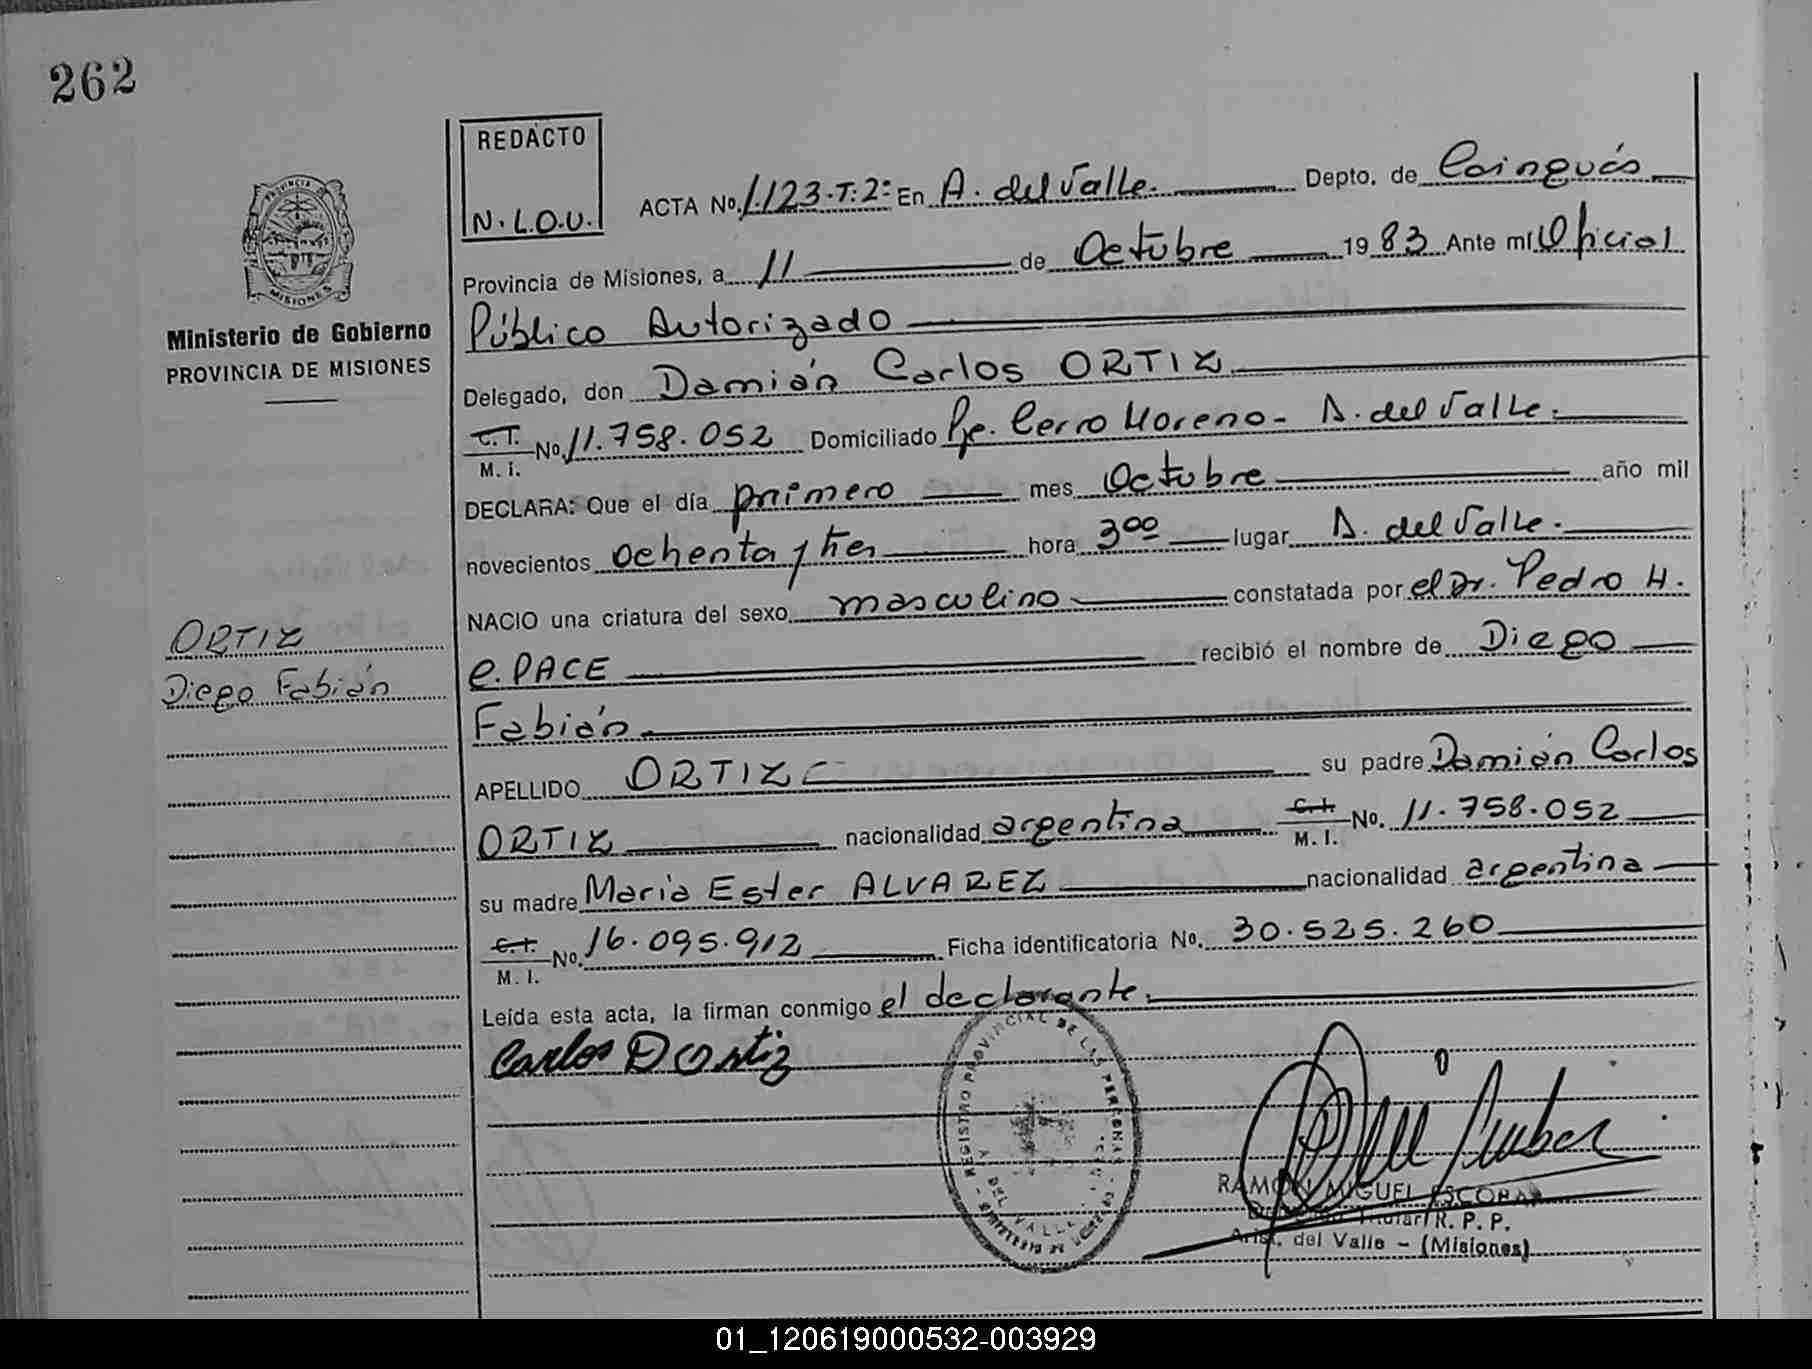 262
REDACTO
N.L.O.U.
ACTA No. 1.123-T:2: En A. del Valle. Depto. de Cainguás
Provincia de Misiones, a 11 de Octubre 1983 Ante mí Oficial
Público Autorizado
Delegado, don Damián Carlos ORTIZ
C.I. M.I. No. 11.758.052 Domiciliado Pje. Cerro Moreno - A. del Valle.
DECLARA: Que el día primero mes Octubre año mil
novecientos ochenta y tres hora 3 00 lugar A. del Valle.
NACIO una criatura del sexo masculino constatada por el Dr. Pedro H.
e. PACE recibió el nombre de Diego
Fabián
APELLIDO ORTIZ su padre Damián Carlos
ORTIZ nacionalidad argentina C.I. M.I. No. 11.758.052
su madre Maria Ester ALVAREZ nacionalidad argentina
C.I. M.I. No. 16.095.912 Ficha identificatoria No. 30.525.260
Leída esta acta, la firman conmigo el declarante.
Carlos D Ortiz
PROVINCIA DE
MISIONES
Ministerio de Gobierno
PROVINCIA DE MISIONES
ORTIZ
Diego Fabián
REGISTRO PROVINCIAL DE LAS PERSONAS
A. DEL VALLE
RAMON MIGUEL ESCOBAR
Titular R. P. P.
Arist. del Valle - (Misiones)
01_120619000532-003929